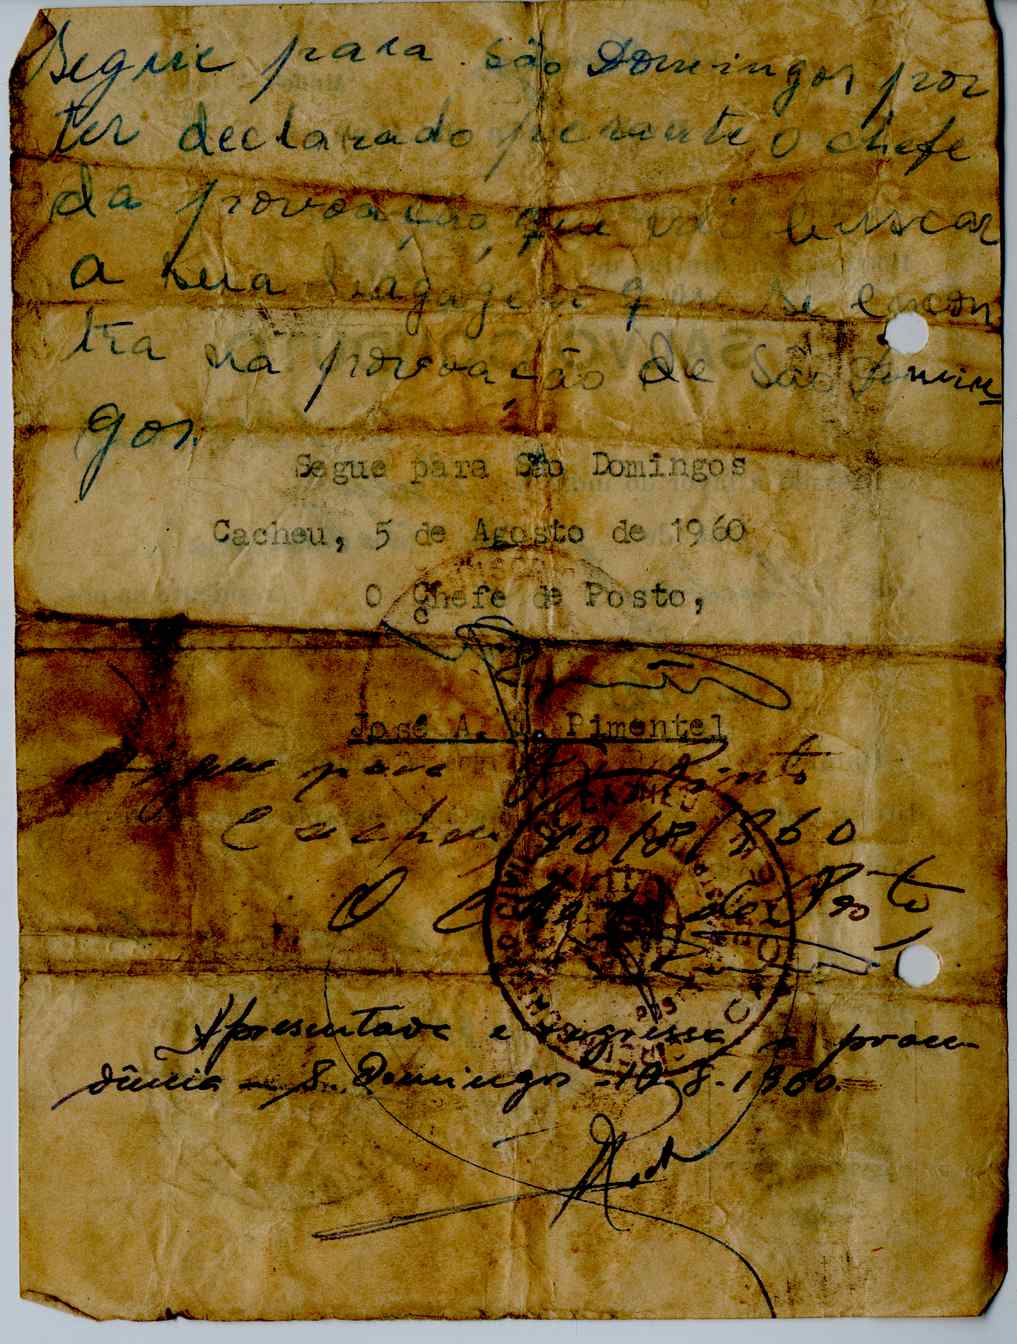 Segue para São Domingos por
ter declarado perante o chefe
da provoação, que vai buscar
a sua bagagem que se encon
tra na provoação de São Domin
gos.
Segue para São Domingos
Cacheu, 5 de Agosto de 1960
O Chefe de Posto,
José A. Pimentel
Segue para
Cacheu, 10/8/960
O Chefe de Posto
Apresentada e regressa a proce-
dência - S. Domingos - 10-8-1960 -
CACHEU